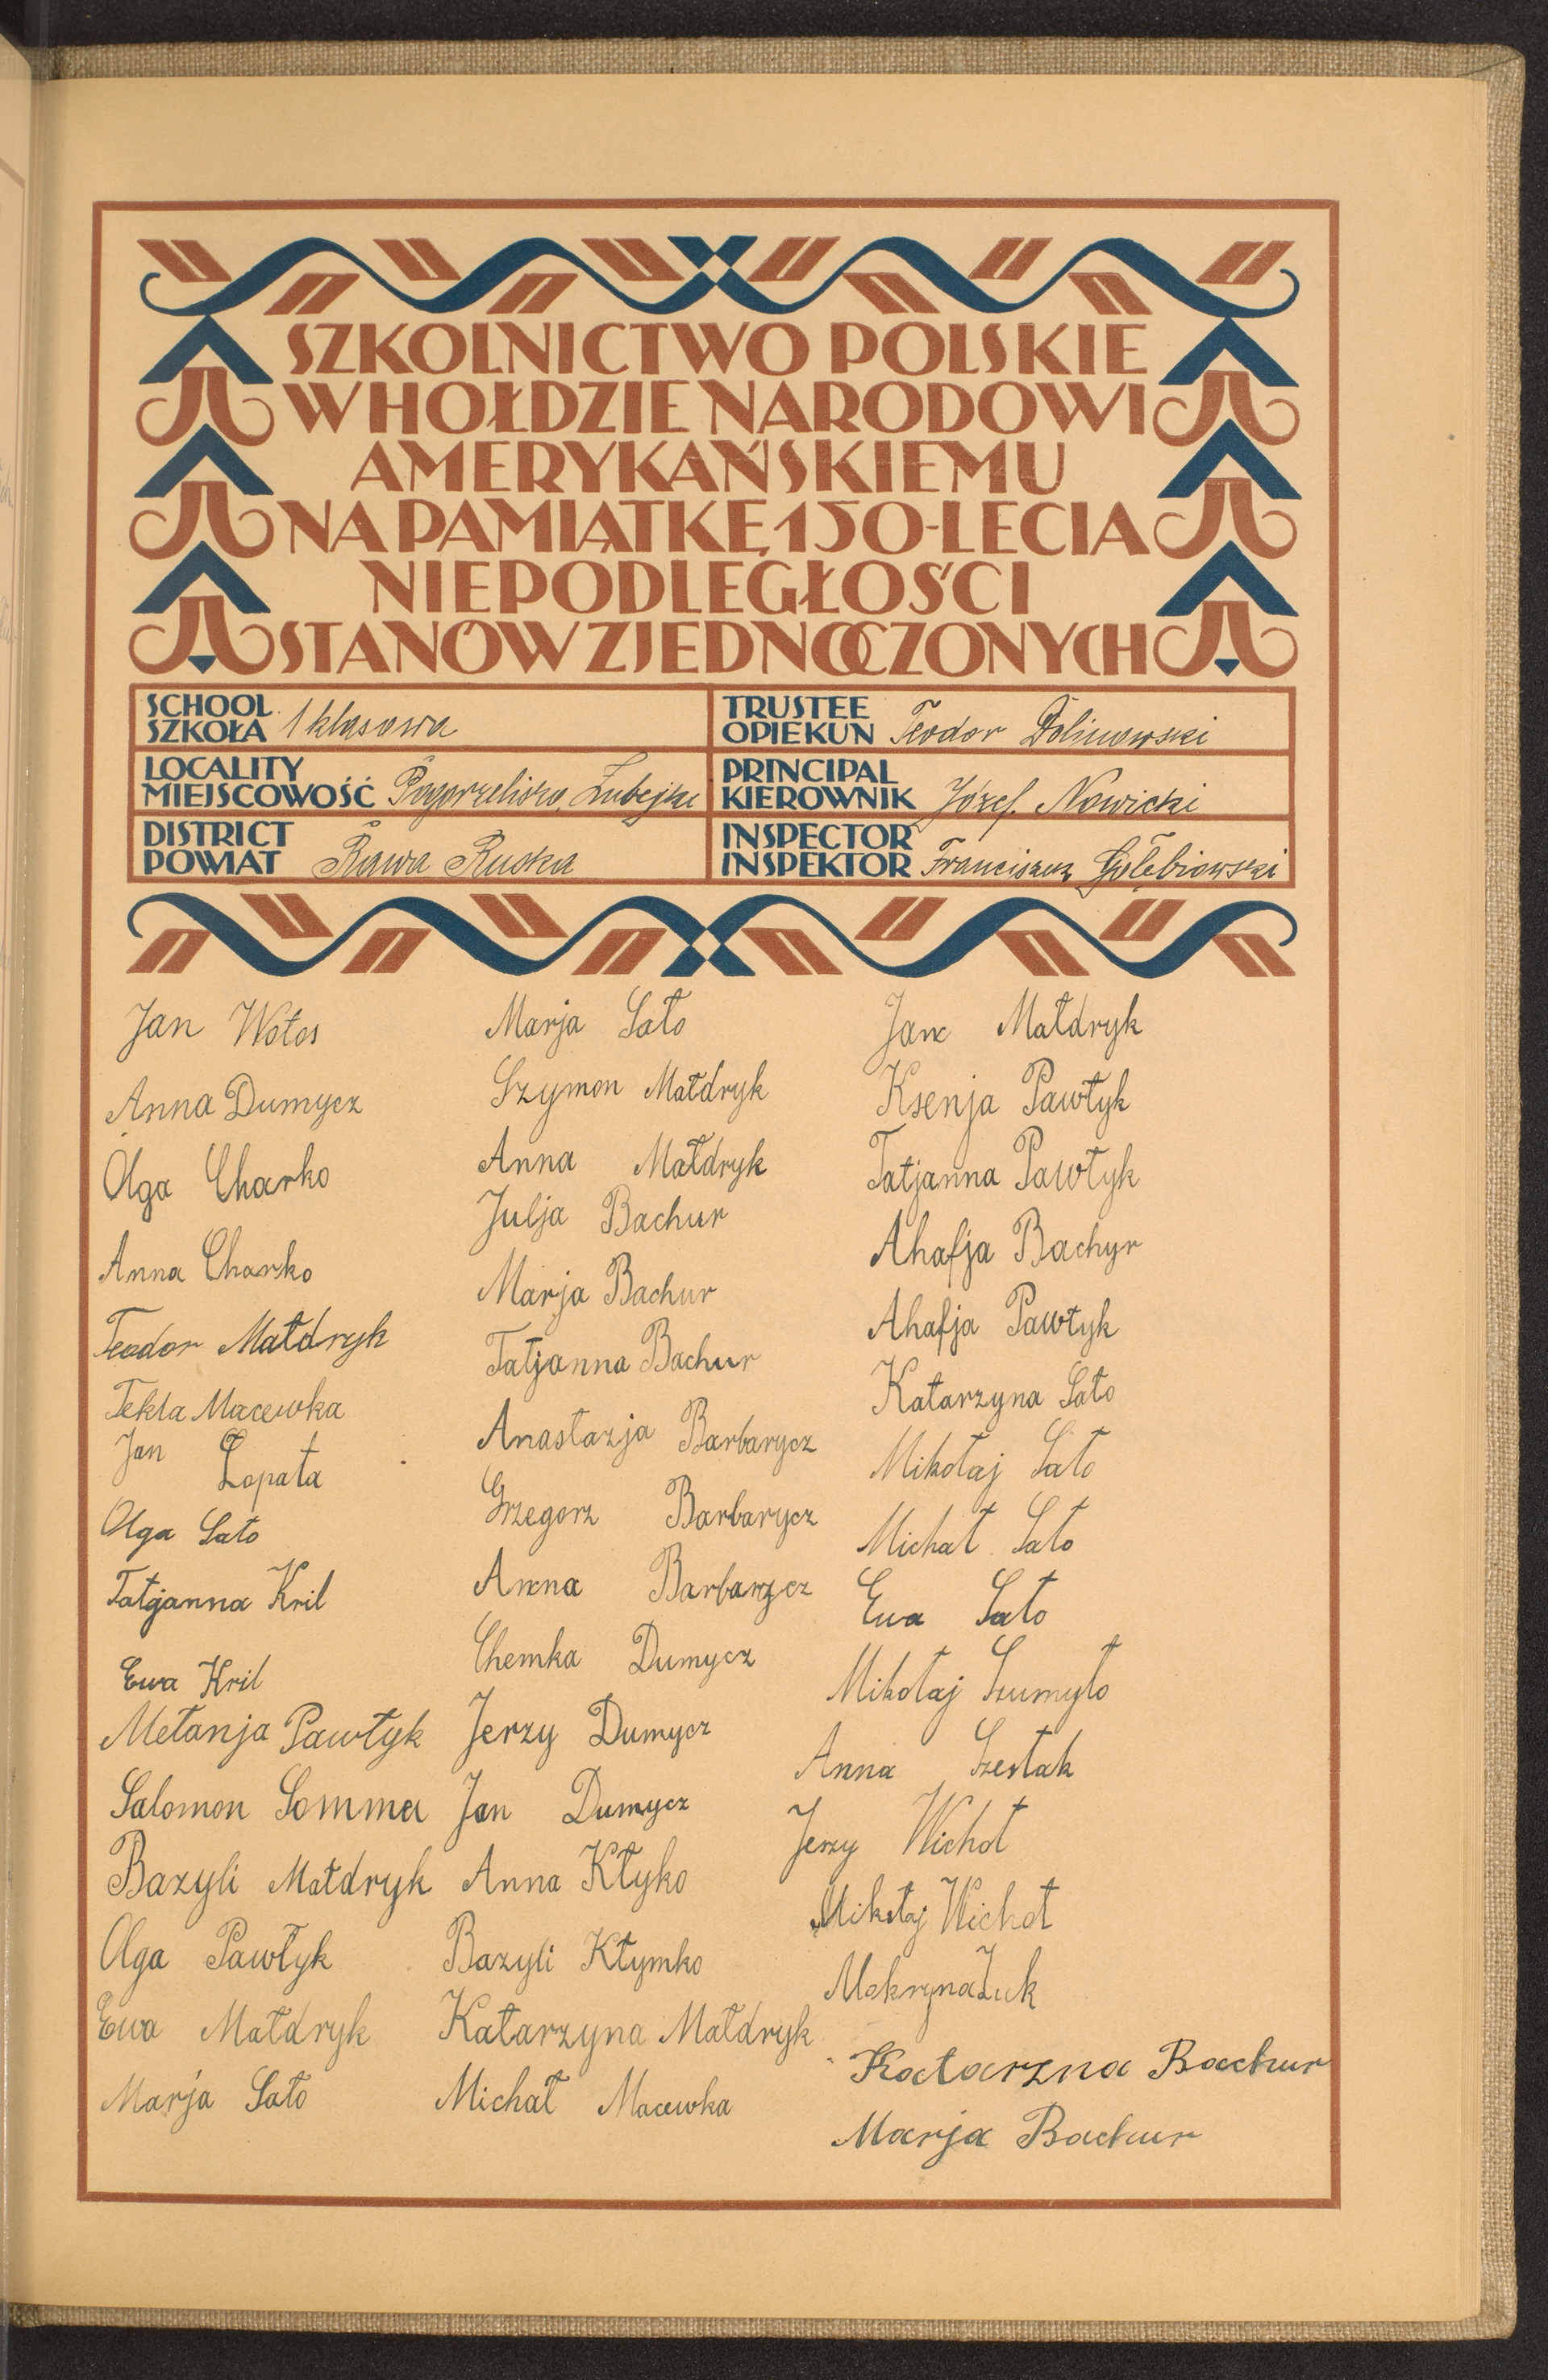 SZKOLNICTWO POLSKIE
W HOŁDZIE NARODOWI
AMERYKAŃSKIEMU
NA PAMIĄTKĘ 150-LECIA
NIEPODLEGŁOŚCI
STANÓW ZJEDNOCZONYCH
SCHOOL
SZKOŁA 1 klasowa
LOCALITY
MIEJSCOWOŚĆ Pogorzelisko
DISTRICT
POWIAT Rawa Ruska
TRUSTEE
OPIEKUN Teodor Dolinowski
PRINCIPAL
KIEROWNIK Józef Nowicki
INSPECTOR
INSPEKTOR Franciszek Gołębiowski
Jan Wołos
Anna Dumycz
Olga Charko
Anna Charko
Teodor Małdryk
Tekla Macewka
Jan Łopata
Olga Sało
Tatjanna Kril
Ewa Kril
Mełanja Pawłyk
Salomon Sommer
Bazyli Małdryk
Olga Pawłyk
Ewa Małdryk
Marja Sało
Marja Sało
Szymon Małdryk
Anna Małdryk
Julja Bachur
Marja Bachur
Tatjanna Bachur
Anastazja Barbarycz
Grzegorz Barbarycz
Anna Barbarycz
Chemka Dumycz
Jerzy Dumycz
Jan Dumycz
Anna Kłyko
Bazyli Kłymko
Katarzyna Małdryk
Michał Macewka
Jan Małdryk
Ksenja Pawłyk
Tatjanna Pawłyk
Ahafja Bachyr
Ahafja Pawłyk
Katarzyna Sało
Mikołaj Sało
Michał Sało
Ewa Sało
Mikołaj Szumyło
Anna Szestak
Jerzy Wichoł
Mikołaj Wichoł
Makryna Żuk
Katarzna Bachur
Marja Bachur